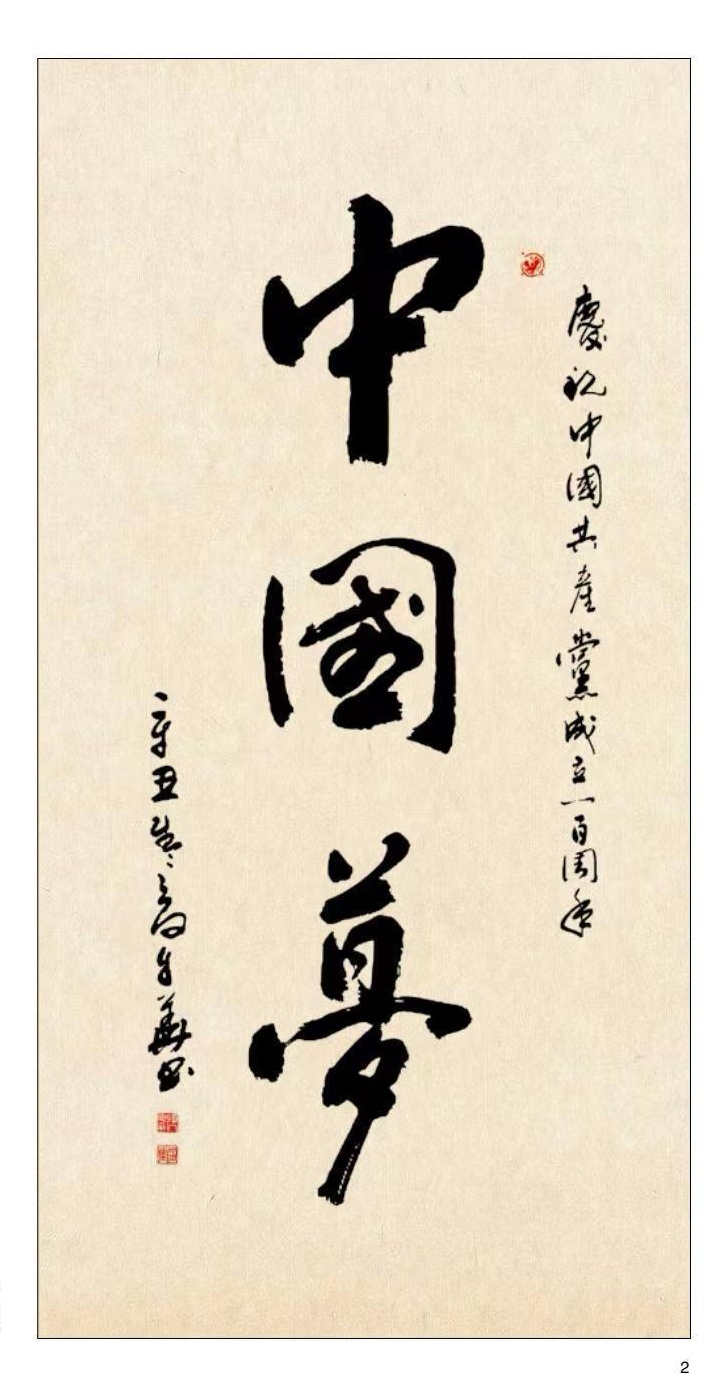 慶祝中國共產黨成立一百周年
中國夢
辛丑
書
2